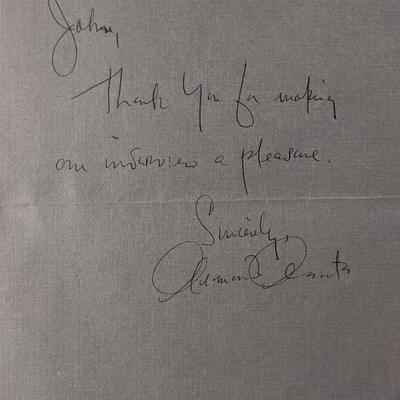 John,
Thank You for making
our interview a pleasure.
Sincerely,
Armand Assante